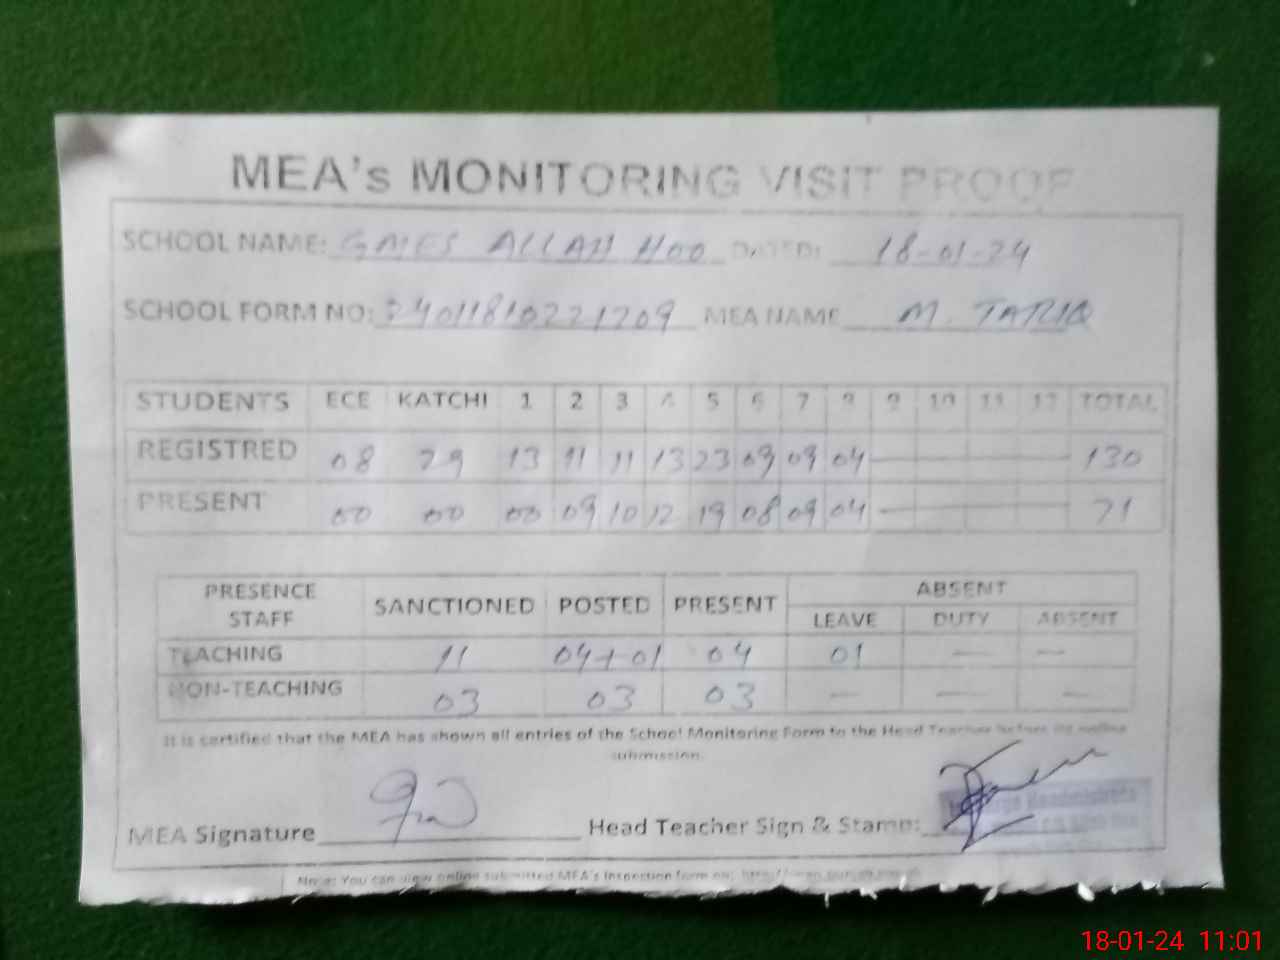 MEA's MONITORING VISIT PROOF
SCHOOL NAME: GMES ALLAH HOO DATED: 18-01-24
SCHOOL FORM NO: 24011810221709 MEA NAME M. TARIQ
STUDENTS ECE KATCHI 1 2 3 4 5 6 7 8 9 10 11 12 TOTAL
REGISTRED 08 29 13 11 11 13 23 09 09 04 130
PRESENT 00 00 00 09 10 12 19 08 09 04 71
PRESENCE STAFF SANCTIONED POSTED PRESENT ABSENT
LEAVE DUTY ABSENT
TEACHING 11 04+01 04 01 — —
NON-TEACHING 03 03 03 — — —
It is certified that the MEA has shown all entries of the School Monitoring Form to the Head Teacher before its online
submission.
MEA Signature Head Teacher Sign & Stamp:
Note: You can view online submitted MEA's inspection form on:
18-01-24 11:01